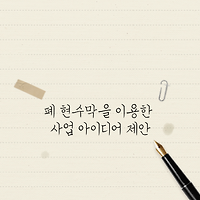 폐 현수막을 이용한
사업 아이디어 제안